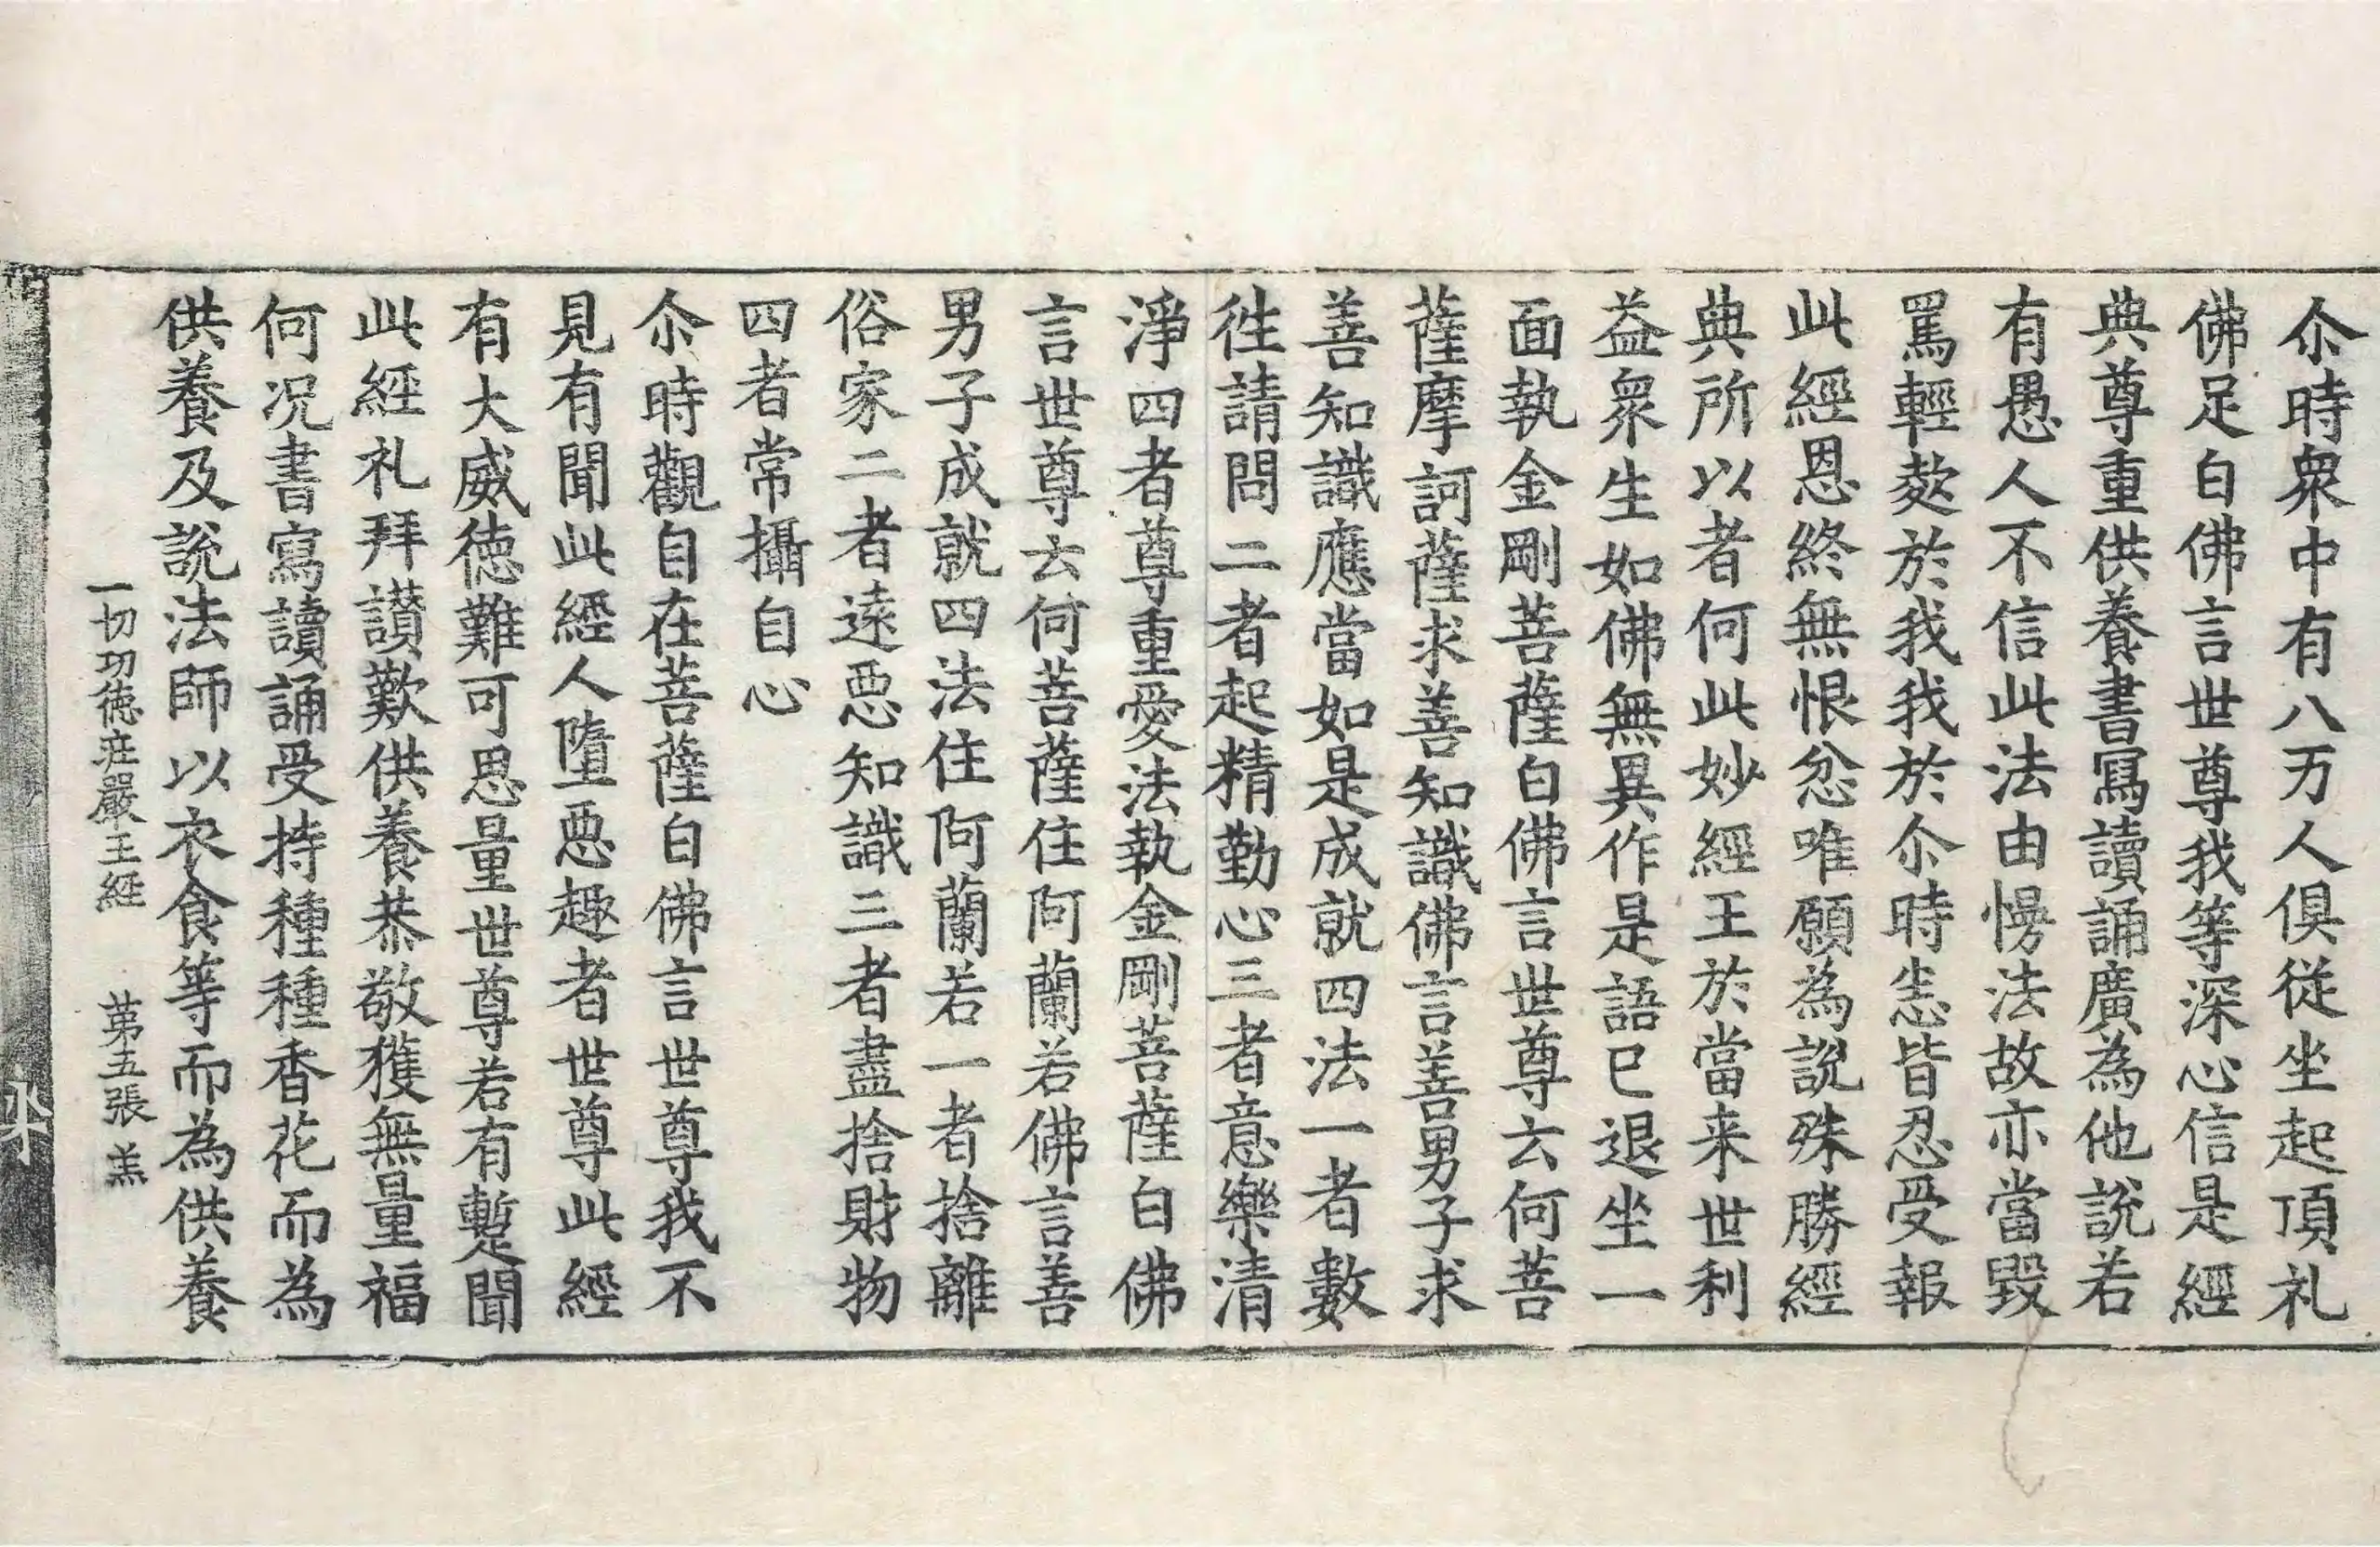 尒時衆中有八万人俱從坐起頂礼
佛足白佛言世尊我等深心信是經
典尊重供養書寫讀誦廣為他說若
有愚人不信此法由㥬法故亦當毀
罵輕欺於我我於尒時恙皆忍受報
此經恩終無恨忿唯願為說殊勝經
典所以者何此妙經王於當来世利
益衆生如佛無異作是語已退坐一
面執金剛菩薩白佛言世尊云何菩
薩摩訶薩求善知識佛言善男子求
善知識應當如是成就四法一者數
徃請問二者起精勤心三者意樂清
淨四者尊重愛法執金剛菩薩白佛
言世尊云何菩薩住阿蘭若佛言善
男子成就四法住阿蘭若一者捨離
俗家二者遠惡知識三者盡捨財物
四者常攝自心
尒時觀自在菩薩白佛言世尊我不
見有聞此經人墮惡趣者世尊此經
有大威徳難可思量世尊若有蹔聞
此經礼拜讃歎供養恭敬獲無量福
何况書寫讀誦受持種種香花而為
供養及說法師以衣食等而為供養
一切功徳庄嚴王經 苐五張 羔